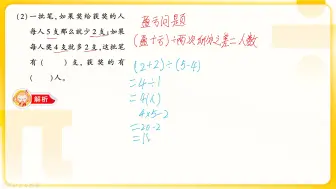 (2)一批笔,如果奖给获奖的人
每人5支那么就少2支;如果
每人奖4支就多2支,这批笔
有( )支,获奖的有
( )人。
解析
盈亏问题
(盈+亏)÷两次分配之差=人数
(2+2)÷(5-4)
=4÷1
=4(人)
4×5-2
=20-2